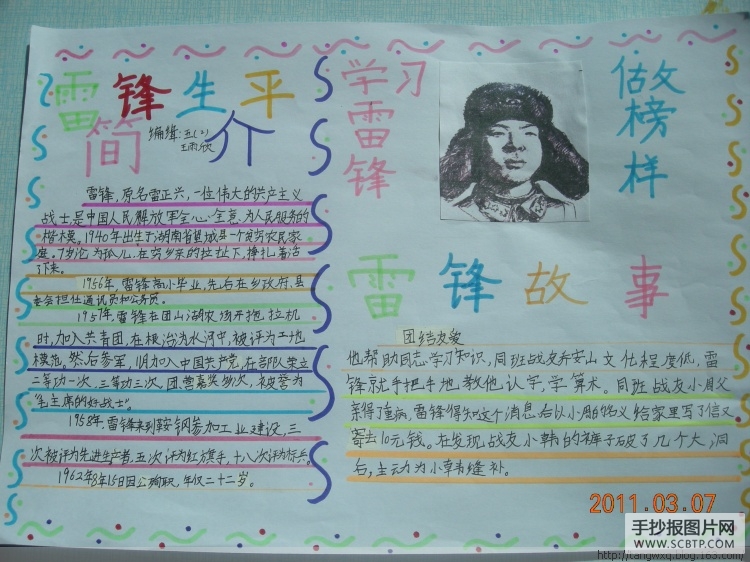 雷锋生平
简介
编缉:五(2)
王雨欣
雷锋,原名雷正兴,一位伟大的共产主义
战士是中国人民解放军全心全意为人民服务的
楷模。1940年出生于湖南省望城县一个贫穷农民家
庭。7岁沦为孤儿,在穷乡亲的拉扯下,挣扎着活
下来。
1956年,雷锋高小毕业,先后在乡政府,县
委会担任通讯员和公务员。
1957年,雷锋在团山湖农场开拖拉机
时,加入共青团,在根治为水河中,被评为工地
模范。然后参军,加入中国共产党,在部队荣立
二等功一次,三等功三次,团营嘉奖多次,被誉为
"毛主席的好战士"。
1958年,雷锋来到鞍钢参加工业建设,三
次被评为先进生产者,五次评为红旗手,十八次评为标兵。
1962年8年15日因公殉职,年仅二十二岁。
学习
雷锋
做文
榜样
雷锋故事
团结友爱
他帮助同志学习知识,同班战友乔安山文化程度低,雷
锋就手把手地教他认字,学算术。同班战友小周父
亲得了重病,雷锋得知这个消息后以小周的名义给家里写了信又
寄去10元钱。在发现战友小韩的裤子破了几个大洞
后,主动为小韩缝补。
2011.03.07
手抄报图片网
WWW.SCBTP.COM
http://tangwxq.blog.163.com/